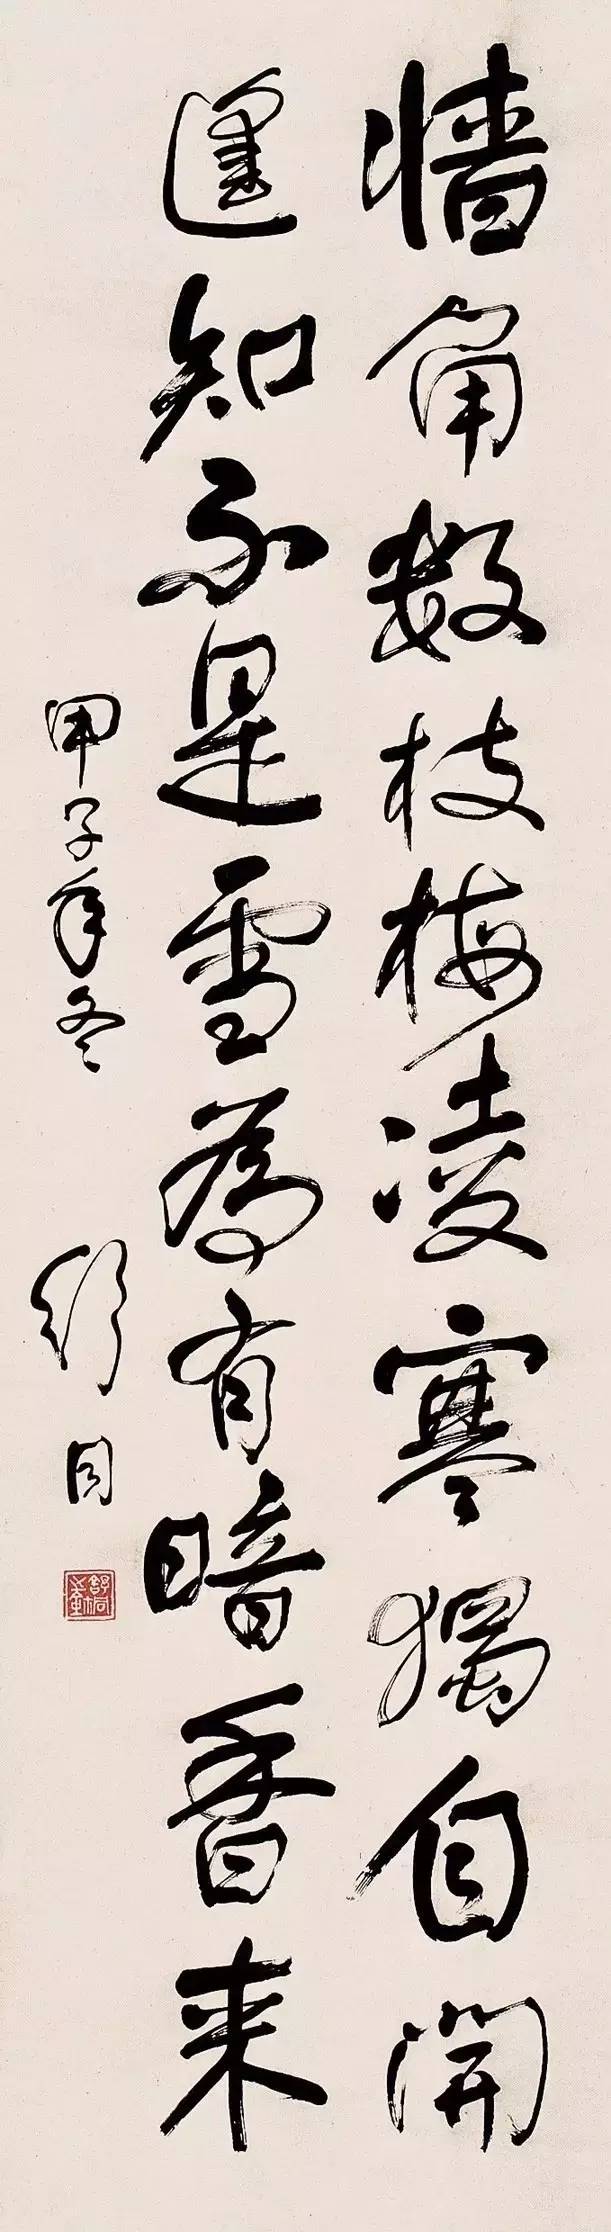 墙角数枝梅凌寒独自開
遥知不是雪為有暗香来
甲子年冬
舒同